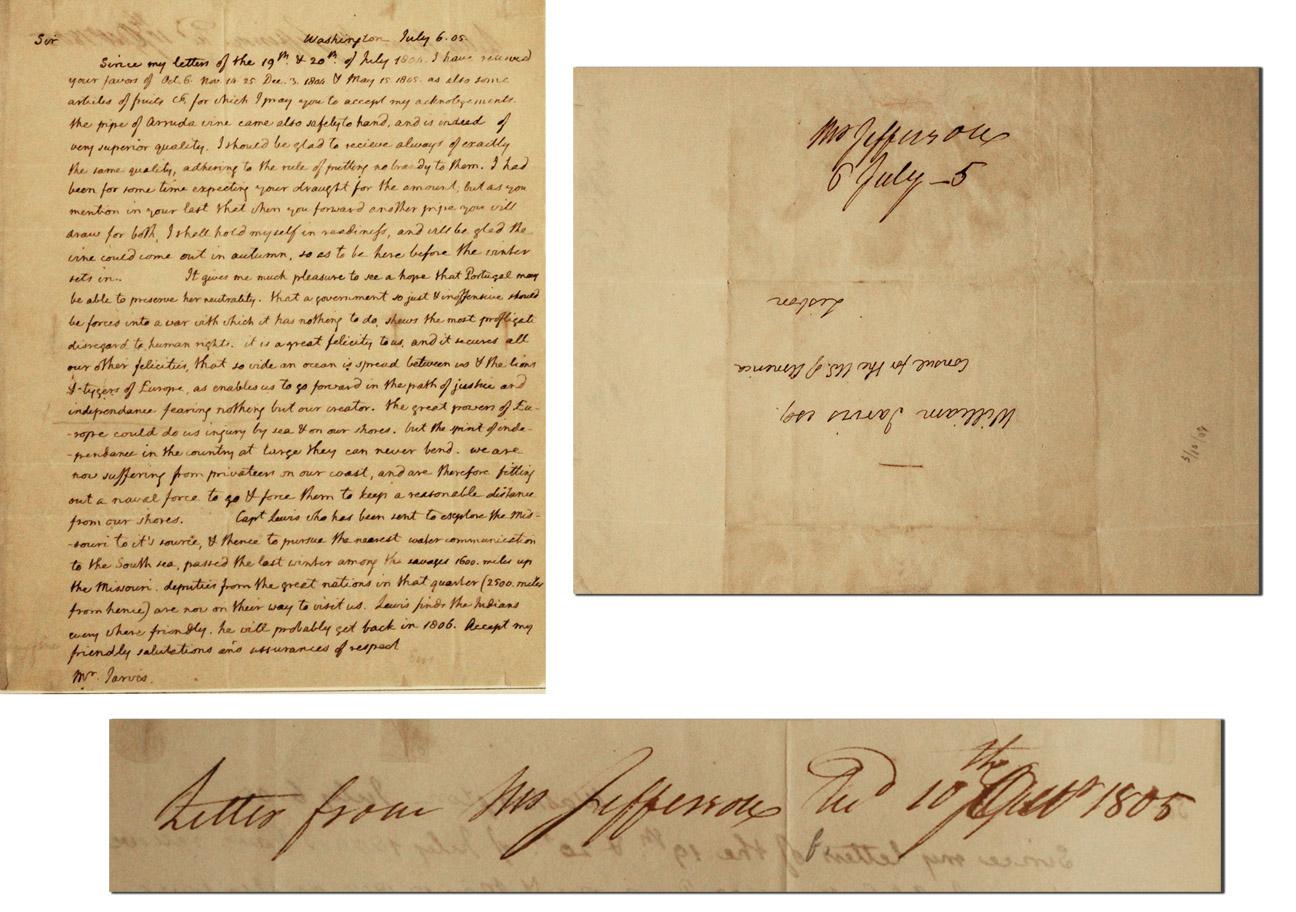 Sir Washington July 6. 05.
Since my letters of the 19th. & 20th. of July 1804. I have recieved
your favors of Oct. 6. Nov. 14. 25. Dec. 3. 1804. & May 15. 1805. as also some
articles of fruits &c. for which I pray you to accept my acknolegements.
the pipe of Arruda wine came also safely to hand, and is indeed of
very superior quality. I should be glad to recieve always of exactly
the same quality, adhering to the rule of putting no brandy to them. I had
been for some time expecting your draught for the amount, but as you
mention in your last that when you forward another pipe you will
draw for both, I shall hold myself in readiness, and will be glad the
wine could come out in autumn, so as to be here before the winter
sets in. It gives me much pleasure to see a hope that Portugal may
be able to preserve her neutrality. that a government so just & inoffensive should
be forced into a war with which it has nothing to do, shews the most profligate
disregard to human rights. it is a great felicity to us, and it secures all
our other felicities, that so wide an ocean is spread between us & the lions
& tygers of Europe, as enables us to go forward in the path of justice and
independance fearing nothing but our creator. the great powers of Eu-
-rope could do us injury by sea & on our shores. but the spirit of inde-
-pendance in the country at large they can never bend. we are
now suffering from privateers on our coast, and are therefore fitting
out a naval force to go & force them to keep a reasonable distance
from our shores. Capt Lewis who has been sent to explore the Mis-
-souri to it's source, & thence to pursue the nearest water communication
to the South sea, passed the last winter among the savages 1600. miles up
the Missouri. deputies from the great nations in that quarter (2500. miles
from hence) are now on their way to visit us. Lewis finds the Indians
every where friendly. he will probably get back in 1806. Accept my
friendly salutations and assurances of respect
Mr. Jarvis.
Mr Jefferson
6 July -5
William Jarvis esq.
Consul for the U.S. of America
Lisbon
Letter from Mr Jefferson Recd 10th 1805
Since my letters of the 19th & 20th of July